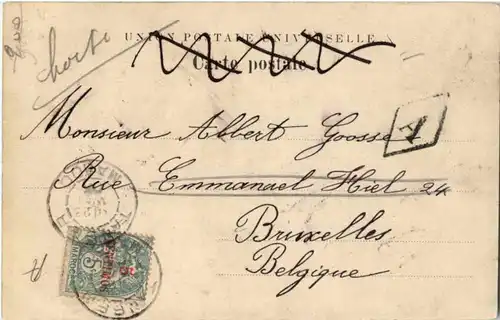 UNION POSTALE UNIVERSELLE
Carte postale
Monsieur Albert Goosse
Rue Emmanuel Hiel 24
Bruxelles
Belgique
A
5